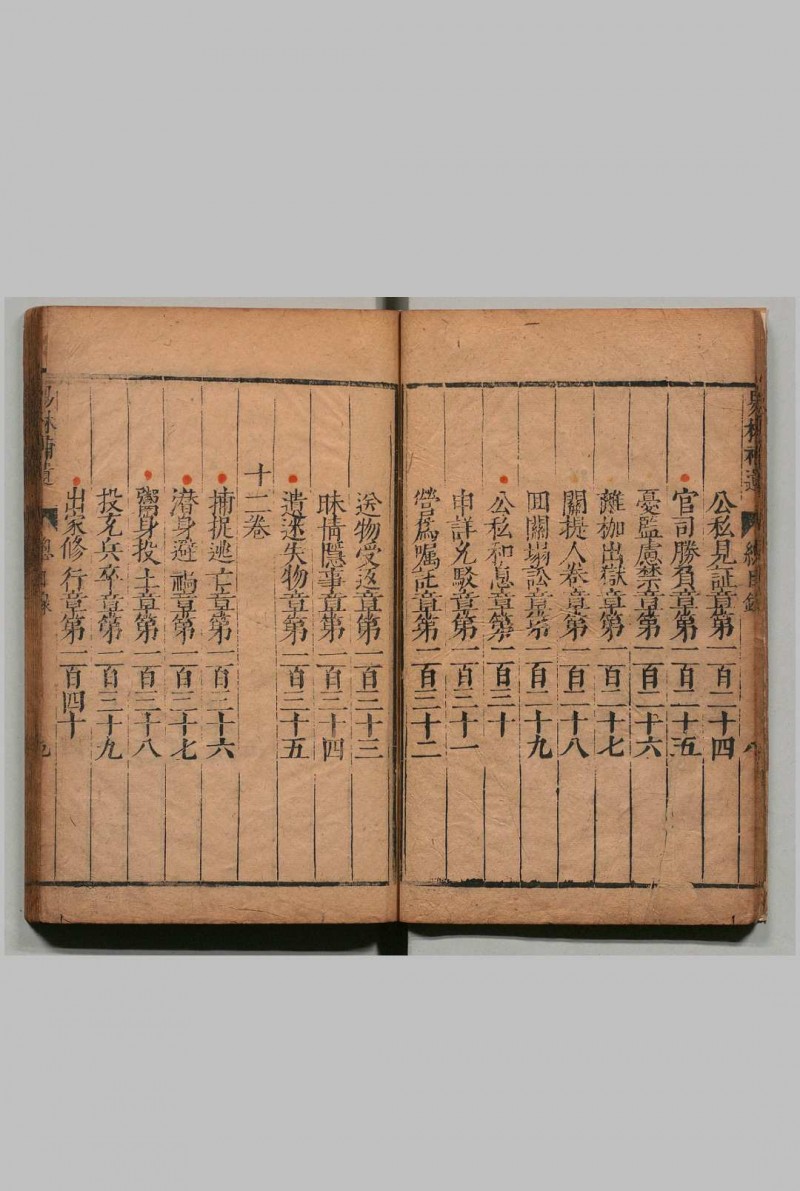 易林補遺
總目錄
八
公私見証章第一百二十四
官司勝負章第一百二十五
憂監慮禁章第一百二十六
離枷出獄章第一百二十七
關提人卷章第一百二十八
田關塲訟章第一百二十九
公私和息章第一百三十
申詳允駁章第一百三十一
營為囑託章第一百三十二
送物受返章第一百三十三
昧情隱事章第一百三十四
遺迷失物章第一百三十五
十二卷
捕捉逃亡章第一百三十六
潛身避禍章第一百三十七
鬻身投主章第一百三十八
投充兵卒章第一百三十九
出家修行章第一百四十
易林補遺
總目錄
九